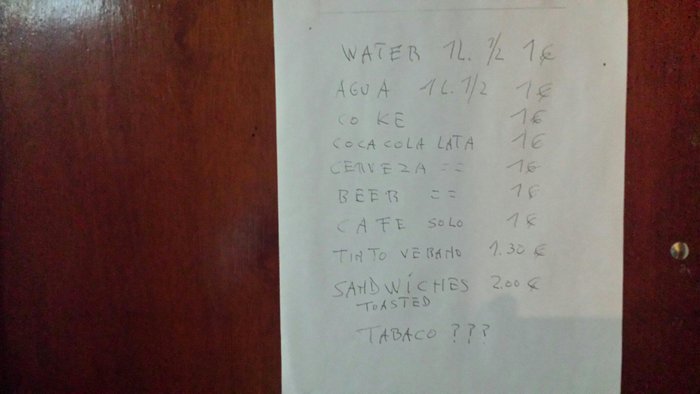 WATER 1L. 1/2 1€
AGUA 1L. 1/2 1€
COKE 1€
COCACOLA LATA 1€
CERVEZA == 1€
BEER == 1€
CAFE SOLO 1€
TINTO VERANO 1.30 €
SANDWICHES 2.00 €
TOASTED
TABACO ???